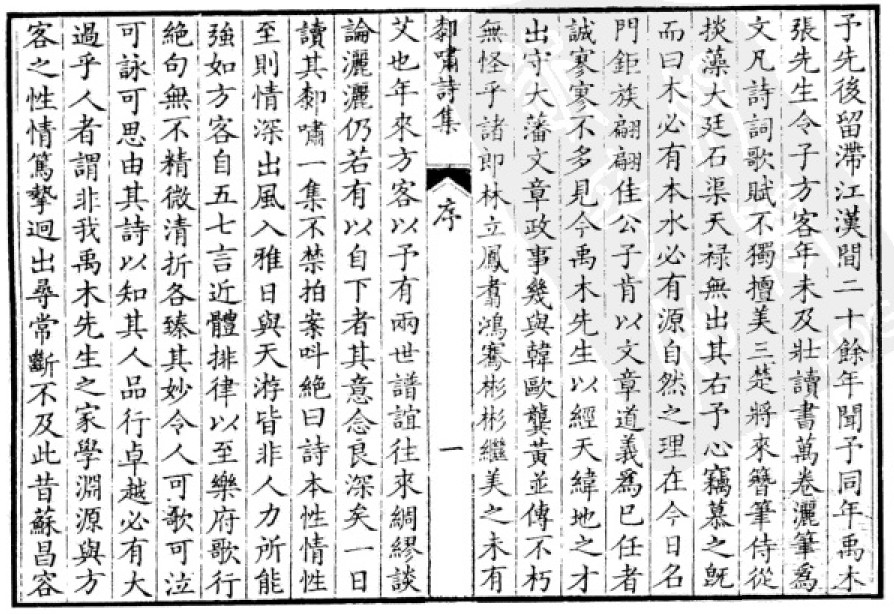 予先後留滯江漢間二十餘年聞予同年禹木
張先生令子方客年未及壯讀書萬卷灑筆爲
文凡詩詞歌賦不獨擅美三楚將來簪筆侍從
掞藻大廷石渠天禄無出其右予心竊慕之旣
而曰木必有本水必有源自然之理在今日名
門鉅族翩翩佳公子肯以文章道義爲已任者
誠寥寥不多見今禹木先生以經天緯地之才
出守大藩文章政事幾與韓歐龔黃並傳不朽
無怪乎諸郎林立鳳翥鴻騫彬彬繼美之未有
嘯詩集
序
一
艾也年來方客以予有兩世譜誼往來綢繆談
論灑灑仍若有以自下者其意念良深矣一日
讀其嘯一集不禁拍案呌絕曰詩本性情性
至則情深出風入雅日與天游皆非人力所能
強如方客自五七言近體排律以至樂府歌行
絶句無不精微清折各臻其妙令人可歌可泣
可詠可思由其詩以知其人品行卓越必有大
過乎人者謂非我禹木先生之家學淵源與方
客之性情篤摯迥出尋常斷不及此昔蘇昌容